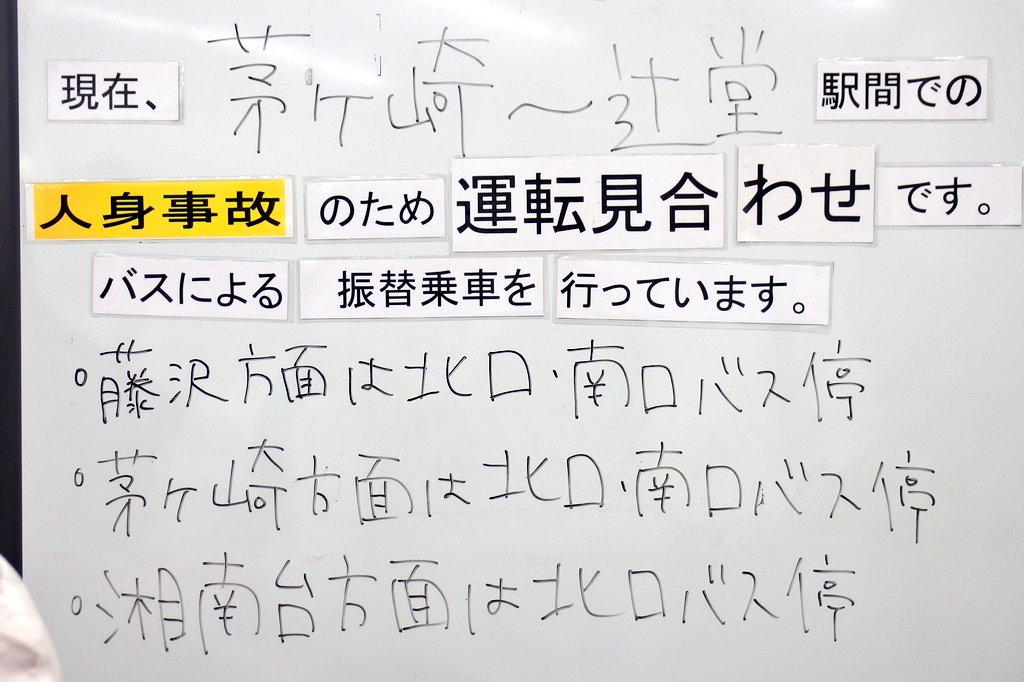 現在、茅ケ崎～辻堂駅間での
人身事故のため運転見合わせです。
バスによる 振替乗車を行っています。
○藤沢方面は北口・南口バス停
○茅ケ崎方面は北口・南口バス停
○湘南台方面は北口バス停